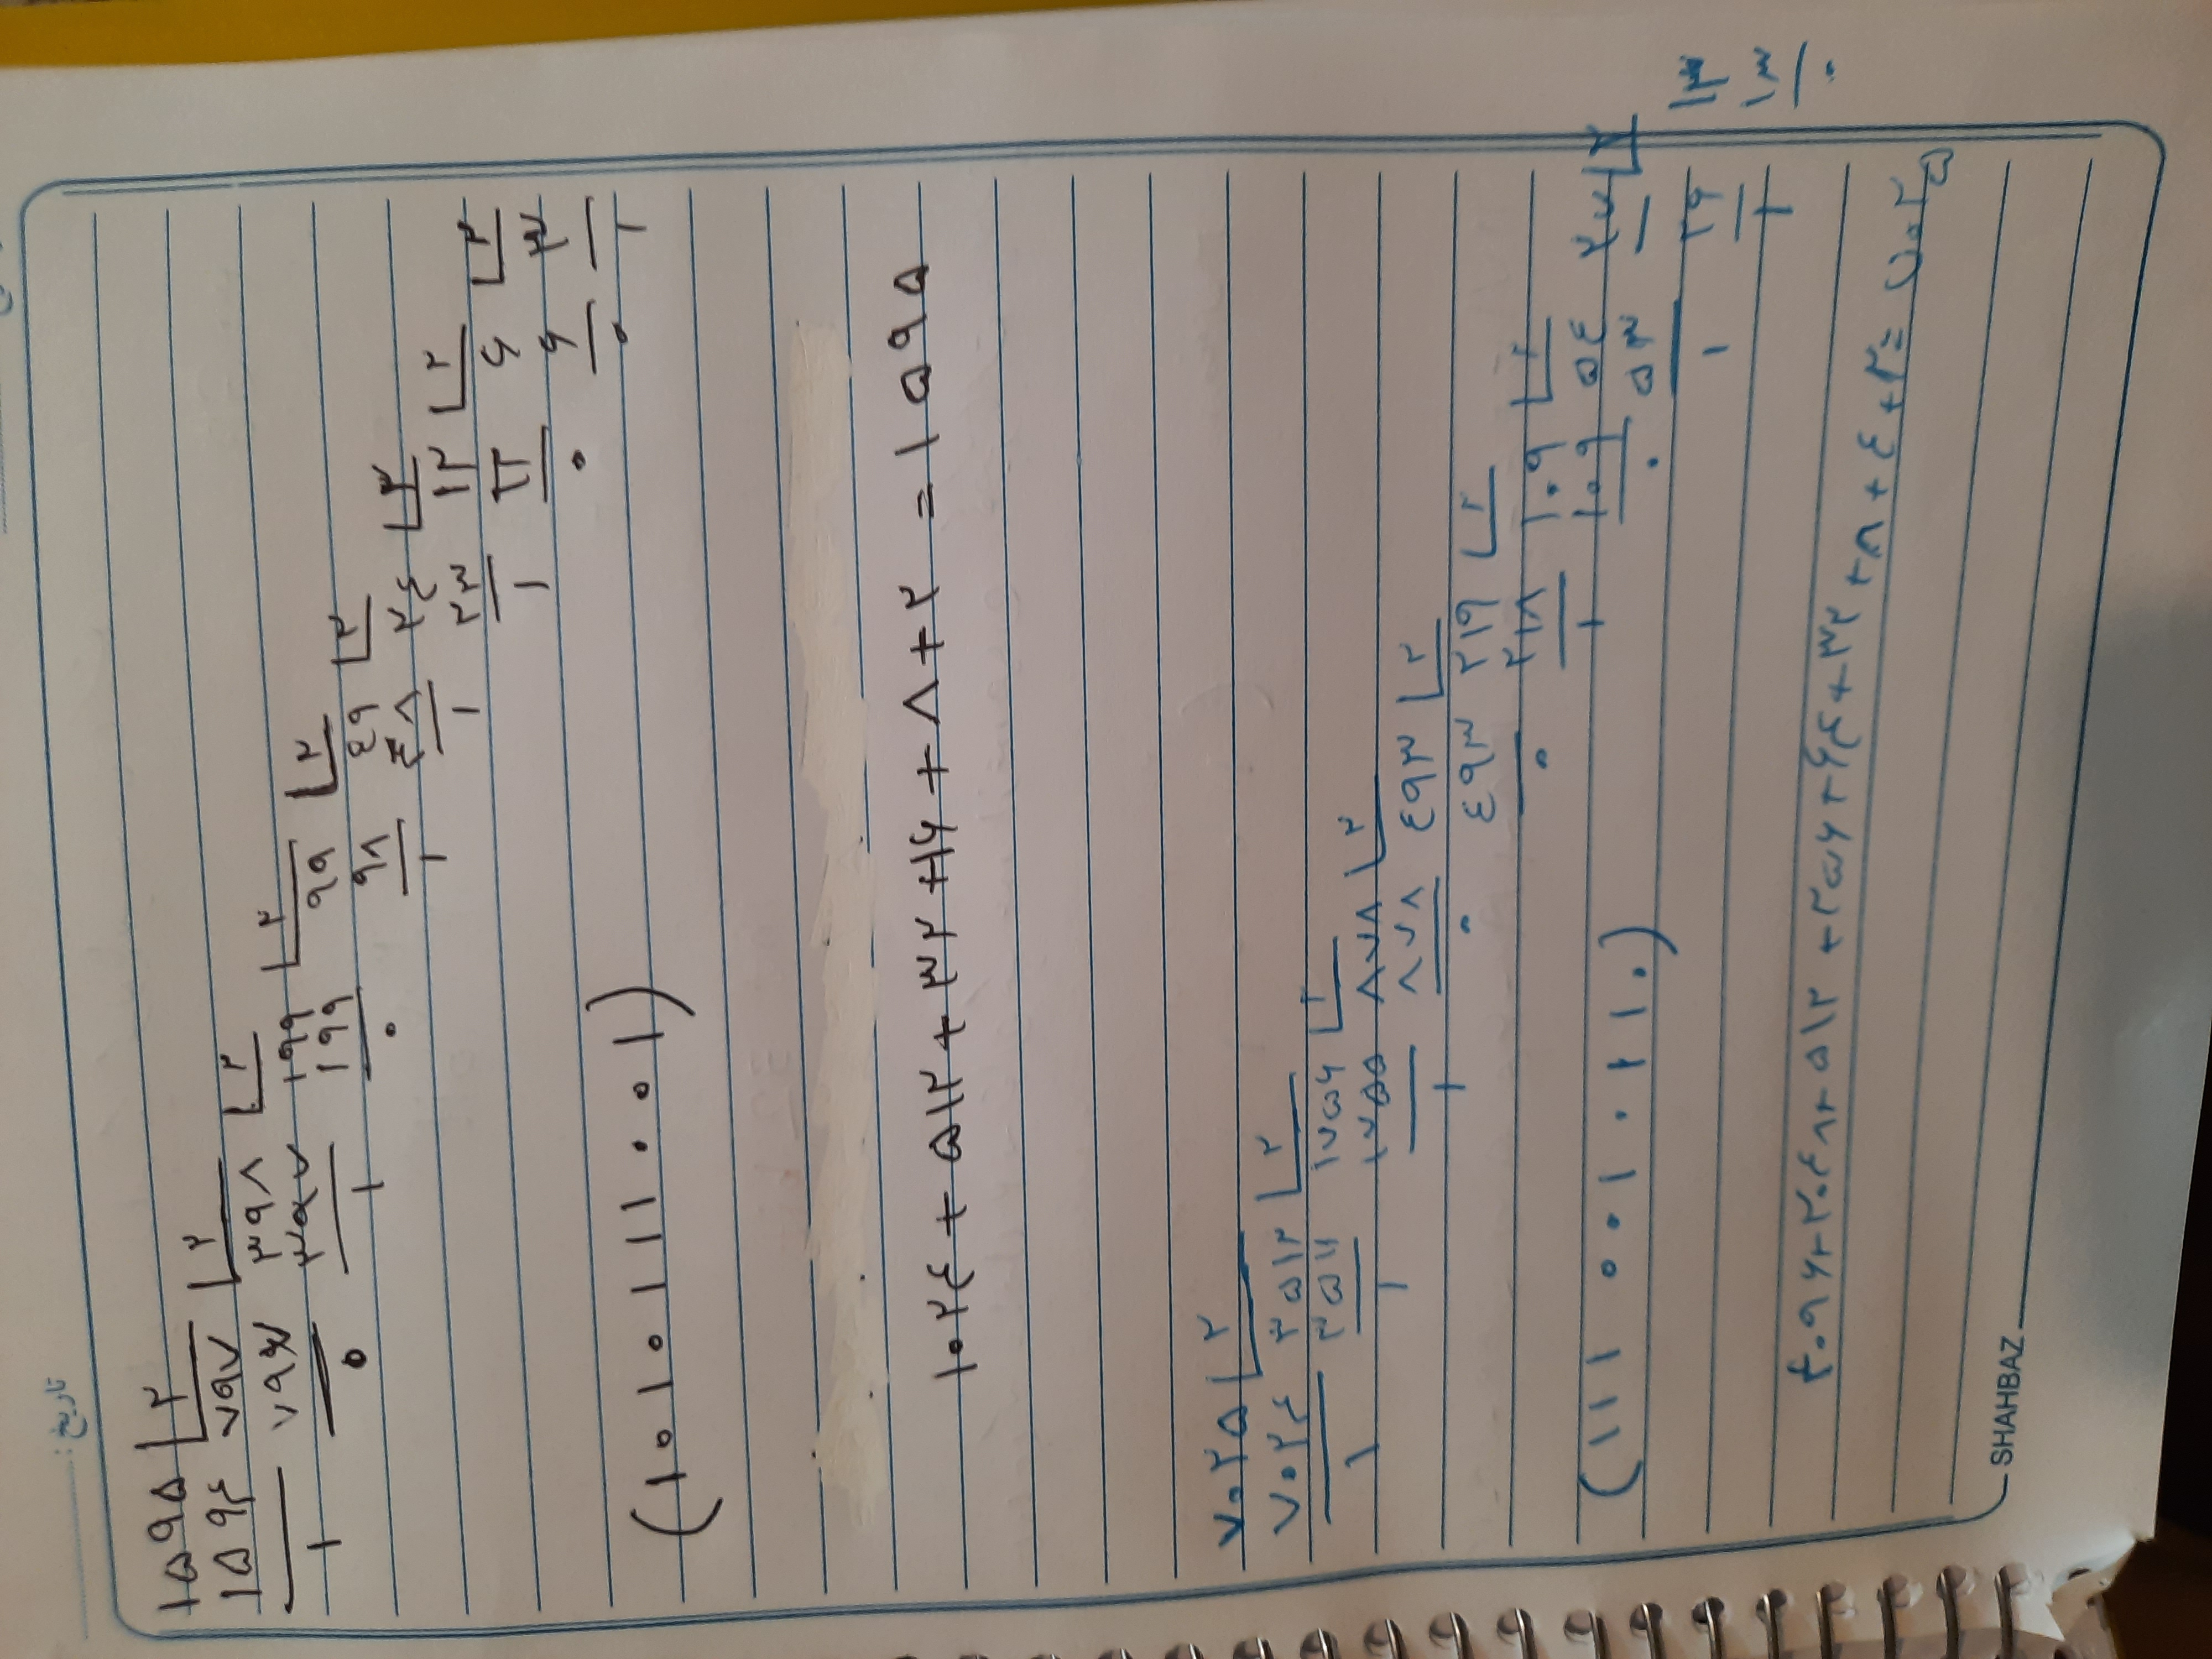 تاریخ :
۱۵۹۵ ۲
۱۵۹۴ ۷۹۷ ۲
۳۹۸ ۲
۱ ۳۹۷ ۱۹۹ ۲
۰ ۱ ۱۹۹ ۹۹ ۲
۰ ۹۸ ۴۹ ۲
۱ ۴۸ ۲۴ ۲
۱ ۲۳ ۱۲ ۲
۱ ۱۲ ۶ ۲
۰ ۶ ۳
۰ ۱
(۱۰۱۰۱۱۱۰۰۱)
۱۰۲۴ + ۵۱۲ + ۳۲ + ۱۶ + ۸ + ۲ = ۱۵۹۵
۷۰۲۵ ۲
۷۰۲۴ ۳۵۱۲ ۲
۱ ۳۵۱۱ ۱۷۵۶ ۲
۱ ۱۷۵۵ ۸۷۸ ۲
۱ ۸۷۸ ۴۹۳ ۲
۰ ۴۹۳ ۲۱۹ ۲
۰ ۲۱۸ ۱۰۹ ۲
۱ ۱۰۹ ۵۴ ۲۷ ۲
۰ ۵۳ ۲۶
۱ ۱ ۱۳
(۱۱۱ ۰۰۱۰۱۱۰)
۴۰۹۶+۲۰۴۸+۵۱۲+۲۵۶+۶۴+۳۲+۸+۴+۲= ۷۰۲۵
SHAHBAZ